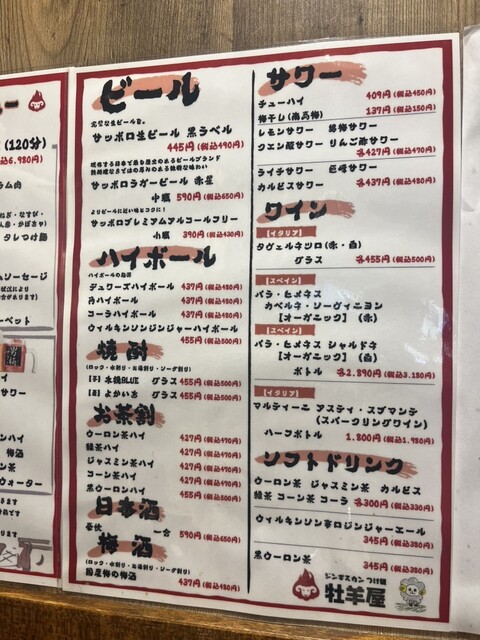 (120分)
税込6,980円)
ラム肉
タレつけ麺
ソーセージ
サワー
ハイ
梅酒
ン茶
ウォーター
ビール
完璧な生ビールを。
サッポロ生ビール 黒ラベル
445円(税込490円)
現存する日本で最も歴史のあるビールブランド
熱処理ならではの厚みのある独特な味わい
サッポロラガービール 赤星
中瓶 590円(税込650円)
よりビールに近い味とコクに!
サッポロプレミアムアルコールフリー
小瓶 390円(税込430円)
ハイボール
デュワーズハイボール 437円(税込480円)
角ハイボール 437円(税込480円)
コーラハイボール 437円(税込480円)
ウィルキンソンジンジャーハイボール
455円(税込500円)
焼酎
(ロック・水割り・お湯割り・ソーダ割り)
【芋】木挽BLUE グラス455円(税込500円)
グラス455円(税込500円)
お茶割
ウーロン茶ハイ 427円(税込470円)
緑茶ハイ 427円(税込470円)
ジャスミン茶ハイ 427円(税込470円)
コーン茶ハイ 427円(税込470円)
黒ウーロンハイ 455円(税込500円)
日本酒
一合 590円(税込650円)
梅酒
(ロック・水割り・お湯割り・ソーダ割り)
国産梅の梅酒
437円(税込480円)
サワー
チューハイ 409円(税込450円)
梅干し(南高梅) 137円(税込150円)
レモンサワー
クエン酸サワー りんご酢サワー
各427円(税込470円)
ライチサワー 巨峰サワー
カルピスサワー 各437円(税込480円)
ワイン
【イタリア】
タヴェルネッロ(赤・白)
グラス 各455円(税込500円)
【スペイン】
パラ・ヒメネス
カベルネ・ソーヴィニヨン
【オーガニック】 (赤)
【スペイン】
パラ・ヒメネス シャルドネ
【オーガニック】 (白)
ボトル 各2,890円(税込3,180円)
【イタリア】
マルティーニ アスティ・スプマンテ
(スパークリングワイン)
ハーフボトル 1,800円(税込1,980円)
ソフトドリンク
ウーロン茶 ジャスミン茶 カルピス
緑茶 コーン茶 コーラ 各300円(税込330円)
ウィルキンソン辛口ジンジャーエール
345円(税込380円)
黒ウーロン茶 345円(税込380円)
ジンギスカン つけ麺
牡羊屋